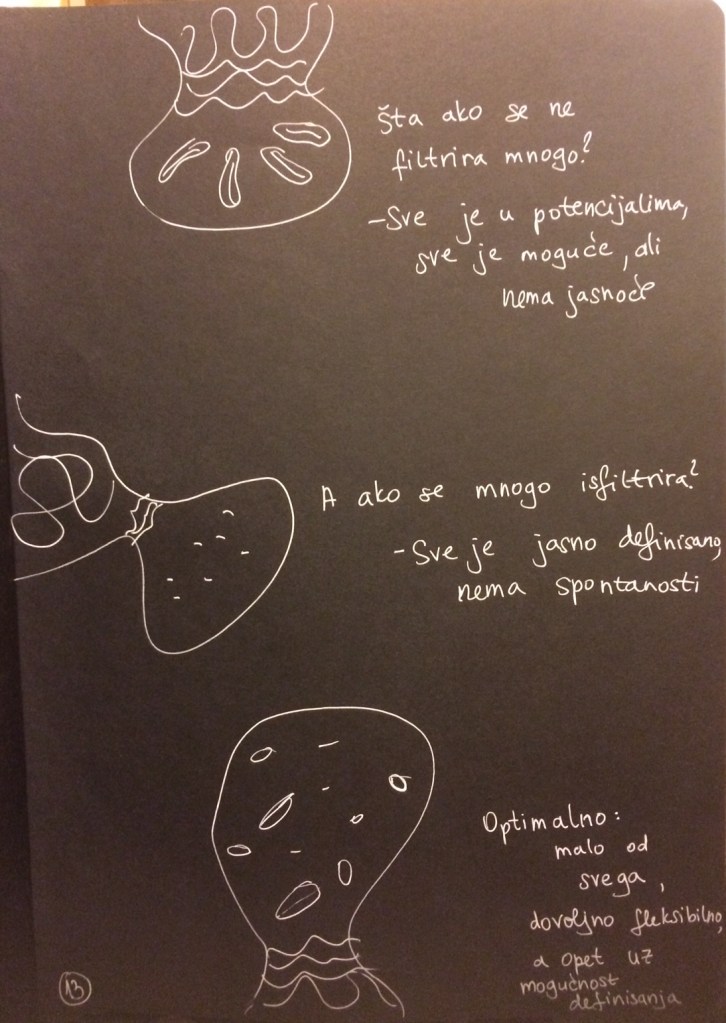 Šta ako se ne
filtrira mnogo?
-Sve je u potencijalima,
sve je moguće, ali
nema jasnoće
A ako se mnogo isfiltrira?
-Sve je jasno definisano,
nema spontanosti
Optimalno:
malo od
svega,
dovoljno fleksibilno,
a opet uz
mogućnost
definisanja
13